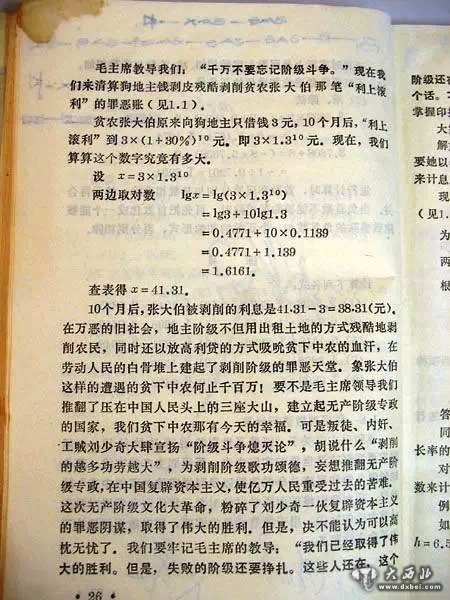 毛主席教导我们：“千万不要忘记阶级斗争。”现在我
们来清算狗地主钱剥皮残酷剥削贫农张大伯那笔“利上滚
利”的罪恶账（见1.1）。
贫农张大伯原来向狗地主只借钱3元，10个月后，“利上
滚利”到3×(1+30%)¹⁰元。即3×1.3¹⁰元。现在，我们
算算这个数字究竟有多大。
设 x=3×1.3¹⁰
两边取对数 lgx=lg(3×1.3¹⁰)
=lg3+10lg1.3
=0.4771+10×0.1139
=0.4771+1.139
=1.6161.
查表得x=41.31.
10个月后，张大伯被剥削的利息是41.31－3=38.31(元)。
在万恶的旧社会，地主阶级不但用出租土地的方式残酷地剥
削农民，同时还以放高利贷的方式吸吮贫下中农的血汗，在
劳动人民的白骨堆上建起了剥削阶级的罪恶天堂。象张大伯
这样的遭遇的贫下中农何止千百万！要不是毛主席领导我们
推翻了压在中国人民头上的三座大山，建立起无产阶级专政
的国家，我们贫下中农那有今天的幸福。可是叛徒、内奸、
工贼刘少奇大肆宣扬“阶级斗争熄灭论”，胡说什么“剥削
的越多功劳越大”，为剥削阶级歌功颂德，妄想推翻无产阶
级专政，在中国复辟资本主义，使亿万人民重受过去的苦难。
这次无产阶级文化大革命，粉碎了刘少奇一伙复辟资本主义
的罪恶阴谋，取得了伟大的胜利。但是，决不能认为可以高
枕无忧了。我们要牢记毛主席的教导：“我们已经取得了伟
大的胜利。但是，失败的阶级还要挣扎。这些人还在，这个
• 26 •
阶级还在
个话。
掌握印
大
解
要她以
来计息
现
(见1.
为
两
根
答
长率的
对
数来计
例
如
h=6.5
大西北
www.dxbei.com